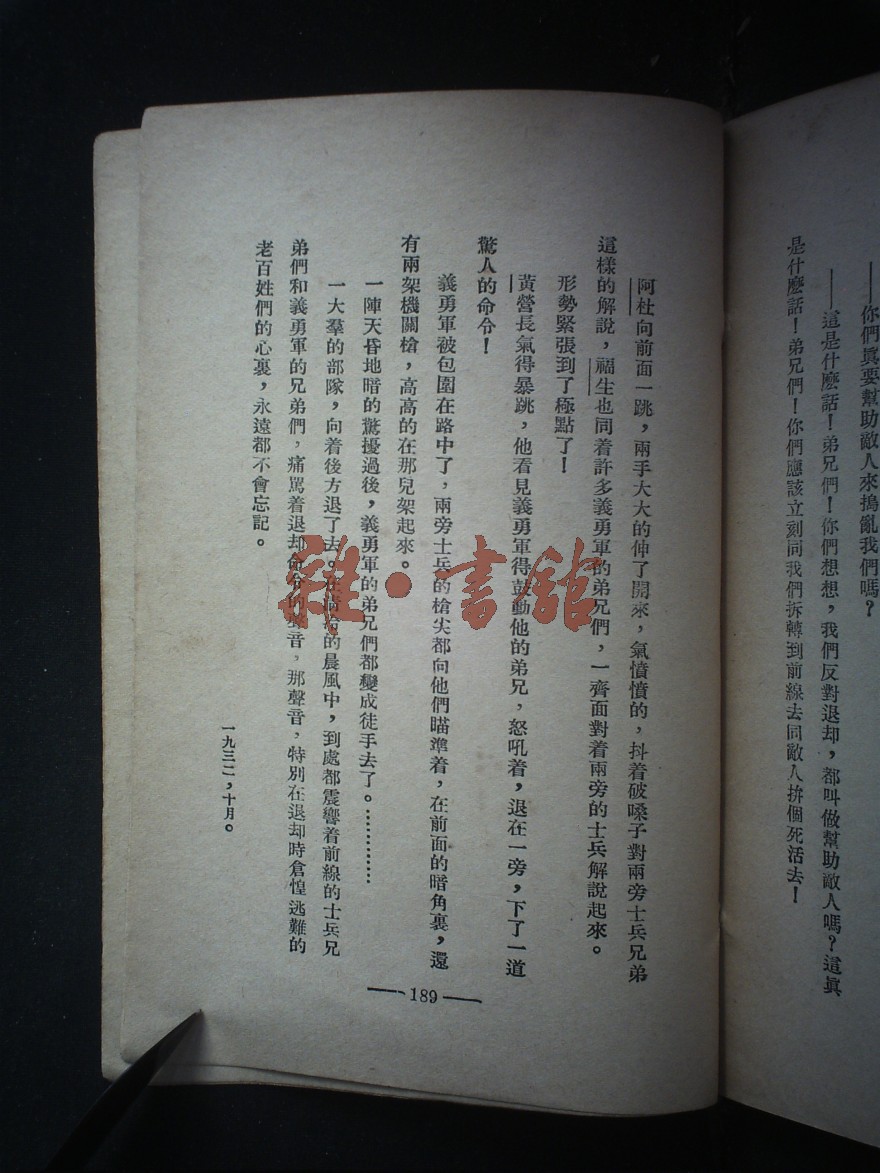 ——你們眞要幫助敵人來搗亂我們嗎？
——這是什麽話！弟兄們！你們想想，我們反對退却，都叫做幫助敵人嗎？這眞
是什麽話！弟兄們！你們應該立刻同我們拆轉到前線去同敵人拚個死活去！
阿杜向前面一跳，兩手大大的伸了開來，氣憤憤的，抖着破嗓子對兩旁士兵兄弟
這樣的解說，福生也同着許多義勇軍的弟兄們，一齊面對着兩旁的士兵解說起來。
形勢緊張到了極點了！
黃營長氣得暴跳，他看見義勇軍得鼓動他的弟兄，怒吼着，退在一旁，下了一道
驚人的命令！
義勇軍被包圍在路中了，兩旁士兵的槍尖都向他們瞄準着，在前面的暗角裏，還
有兩架機關槍，高高的在那兒架起來。
一陣天昏地暗的驚擾過後，義勇軍的弟兄們都變成徒手去了。…………
一大羣的部隊，向着後方退了去。在的晨風中，到處都震響着前線的士兵兄
弟們和義勇軍的兄弟們，痛罵着退却命令的聲音，那聲音，特別在退却時倉惶逃難的
老百姓們的心裏，永遠都不會忘記。
一九三二，十月。
—189—
雜·書館